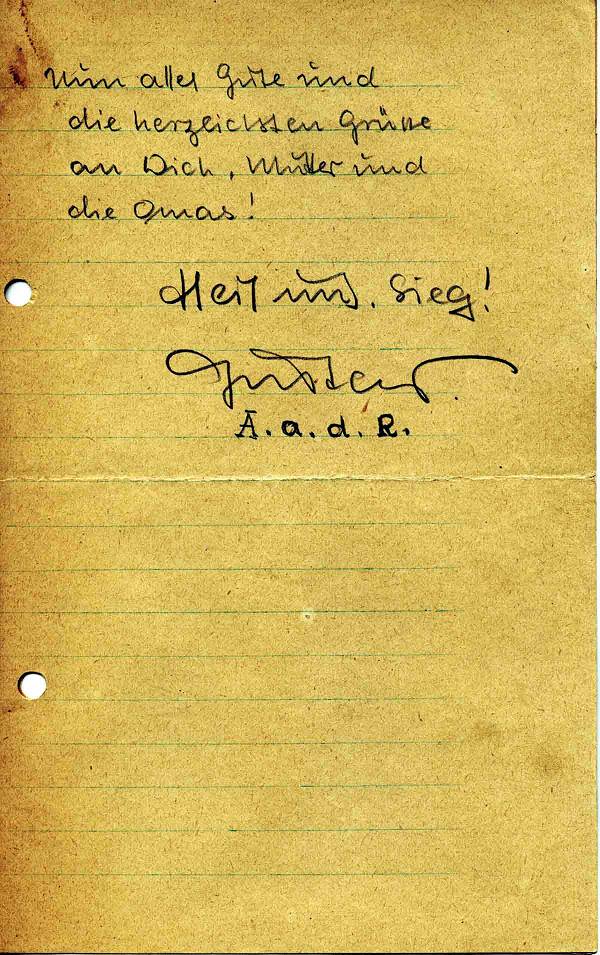 Nun alles Gute und
die herzlichsten Grüsse
an Dich, Mutter und
die Omas!
Heil und Sieg!
A.a.d.R.